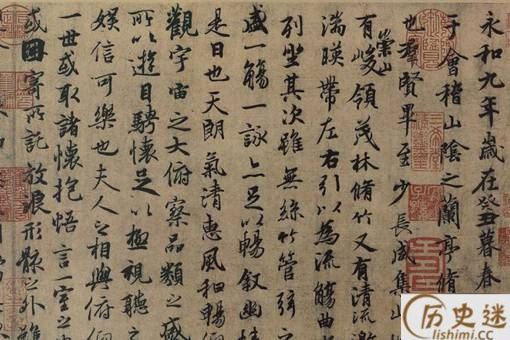 永和九年歲在癸丑暮春
于會稽山陰之蘭亭脩
也羣賢畢至少長咸集
崇山
有峻領茂林脩竹又有清流激
湍暎帶左右引以為流觴曲
列坐其次雖無絲竹管弦之
盛一觴一詠亦足以暢叙幽情
是日也天朗氣清惠風和暢
觀宇宙之大俯察品類之盛
所以遊目騁懷足以極視聽之
娛信可樂也夫人之相與俯仰
一世或取諸懷抱悟言一室之
或因寄所託放浪形骸之外雖
历史迷
lishimi.cc